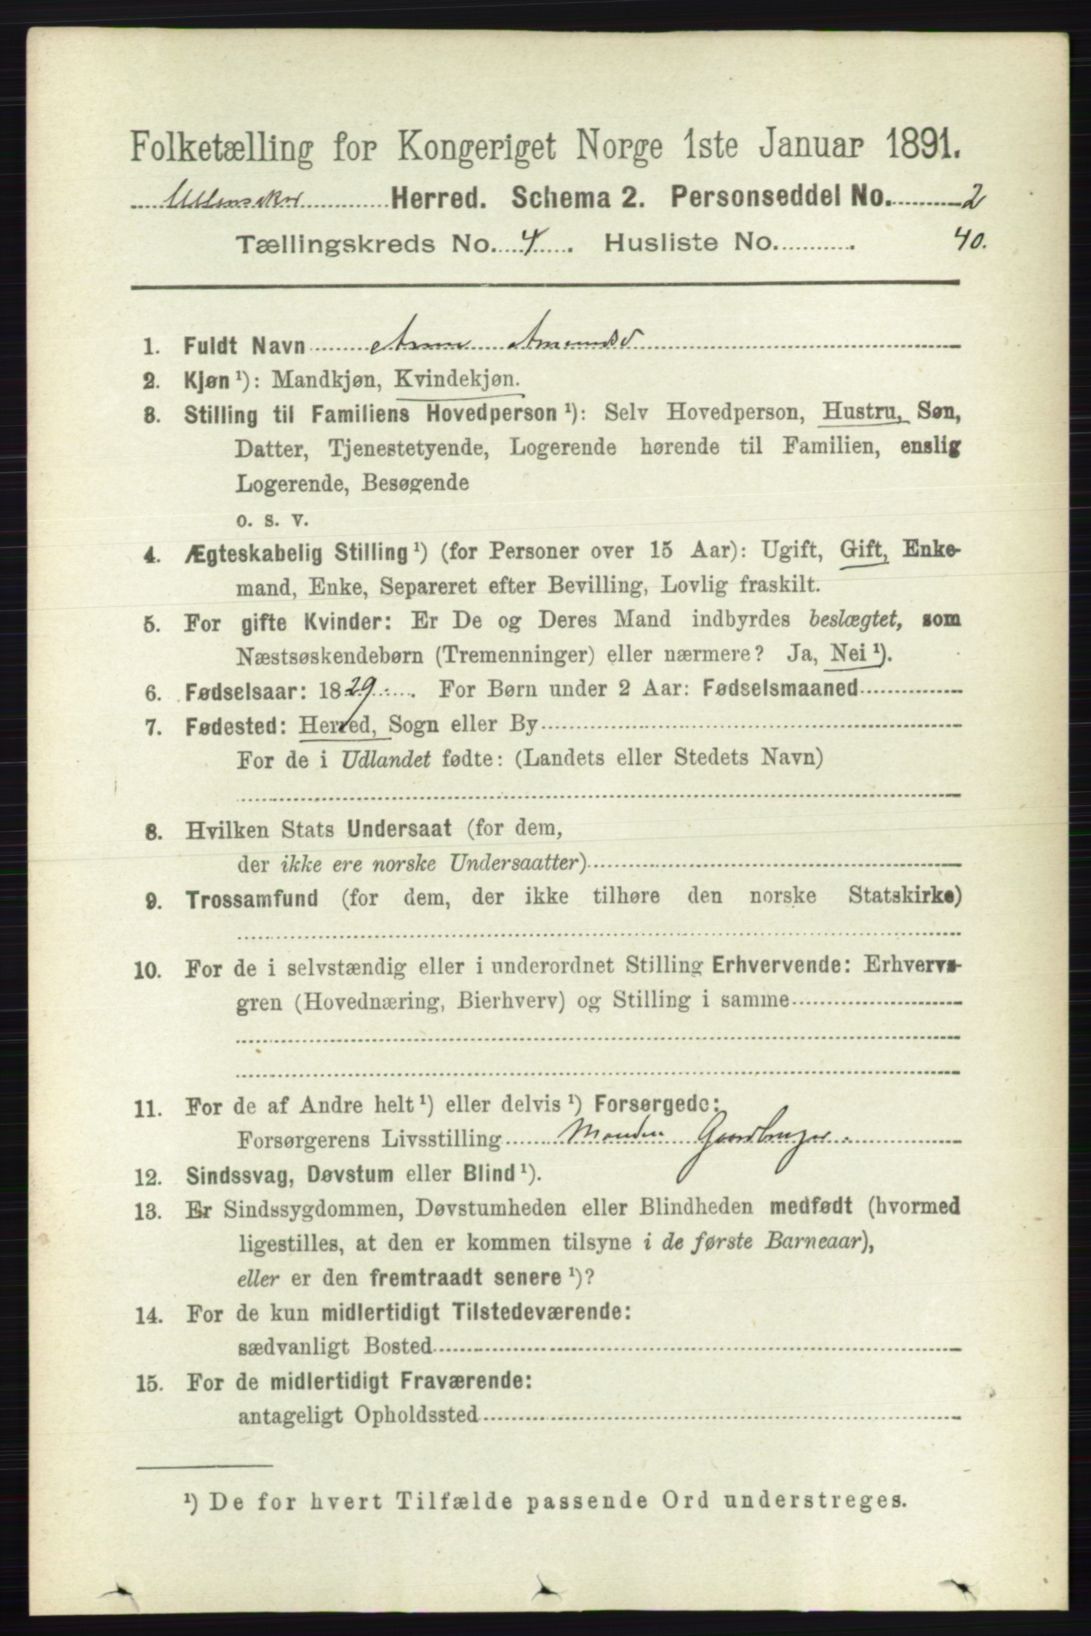 Folketælling for Kongeriget Norge 1ste Januar 1891.
Ullensaker Herred. Schema 2. Personseddel No. 2
Tællingskreds No. 4. Husliste No. 40.
1. Fuldt Navn Anne Amundsd
2. Kjøn ¹): Mandkjøn, Kvindekjøn.
3. Stilling til Familiens Hovedperson ¹): Selv Hovedperson, Hustru, Søn,
Datter, Tjenestetyende, Logerende hørende til Familien, enslig
Logerende, Besøgende
o. s. v.
4. Ægteskabelig Stilling ¹) (for Personer over 15 Aar): Ugift, Gift, Enke-
mand, Enke, Separeret efter Bevilling, Lovlig fraskilt.
5. For gifte Kvinder: Er De og Deres Mand indbyrdes beslægtet, som
Næstsøskendebørn (Tremenninger) eller nærmere? Ja, Nei ¹).
6. Fødselsaar: 1829. For Børn under 2 Aar: Fødselsmaaned
7. Fødested: Herred, Sogn eller By
For de i Udlandet fødte: (Landets eller Stedets Navn)
8. Hvilken Stats Undersaat (for dem,
der ikke ere norske Undersaatter)
9. Trossamfund (for dem, der ikke tilhøre den norske Statskirke)
10. For de i selvstændig eller i underordnet Stilling Erhvervende: Erhvervs-
gren (Hovednæring, Bierhverv) og Stilling i samme
11. For de af Andre helt ¹) eller delvis ¹) Forsørgede:
Forsørgerens Livsstilling Manden Gaardbruger.
12. Sindssvag, Døvstum eller Blind ¹).
13. Er Sindssygdommen, Døvstumheden eller Blindheden medfødt (hvormed
ligestilles, at den er kommen tilsyne i de første Barneaar),
eller er den fremtraadt senere ¹)?
14. For de kun midlertidigt Tilstedeværende:
sædvanligt Bosted
15. For de midlertidigt Fraværende:
antageligt Opholdssted
¹) De for hvert Tilfælde passende Ord understreges.